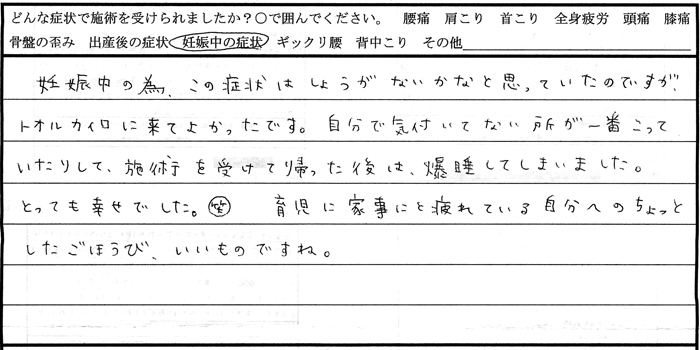 どんな症状で施術を受けられましたか?○で囲んでください。 腰痛 肩こり 首こり 全身疲労 頭痛 膝痛
骨盤の歪み 出産後の症状 妊娠中の症状 ギックリ腰 背中こり その他
妊娠中の為、この症状はしょうがないかなと思っていたのですが、
トオルカイロに来てよかったです。自分で気付いてない所が一番こって
いたりして、施術を受けて帰った後は、爆睡してしまいました。
とっても幸せでした。笑 育児に家事にと疲れている自分へのちょっと
したごほうび、いいものですね。